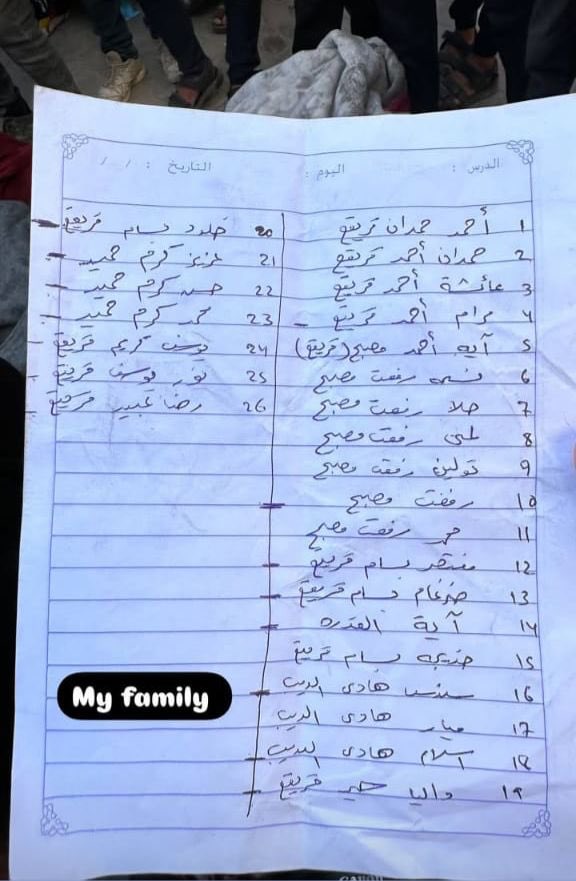 الدرس : اليوم : التاريخ : / /
1 أحمد حمدان قريقع
2 حمدان أحمد قريقع
3 عائشة أحمد قريقع
4 مرام أحمد قريقع
5 آية أحمد مصبح (قريقع)
6 نسمه رفعت مصبح
7 حلا رفعت مصبح
8 لمى رفعت مصبح
9 تولين رفعت مصبح
10 رفعت مصبح
11 رفعت مصبح
12 منتصر بسام قريقع
13 ضرغام بسام قريقع
14 آية
15 خديجه بسام قريقع
16 سندس هادي الديب
17 ميار هادي الديب
18 اسلام هادي الديب
19 داليا قريقع
20 خلود بسام قريقع
21 عزيز كرم حميد
22 حسن كرم حميد
23 محمد كرم حميد
24 يوسف كريم قريقع
25 نور يوسف قريقع
26 رضا عبير قريقع
My family